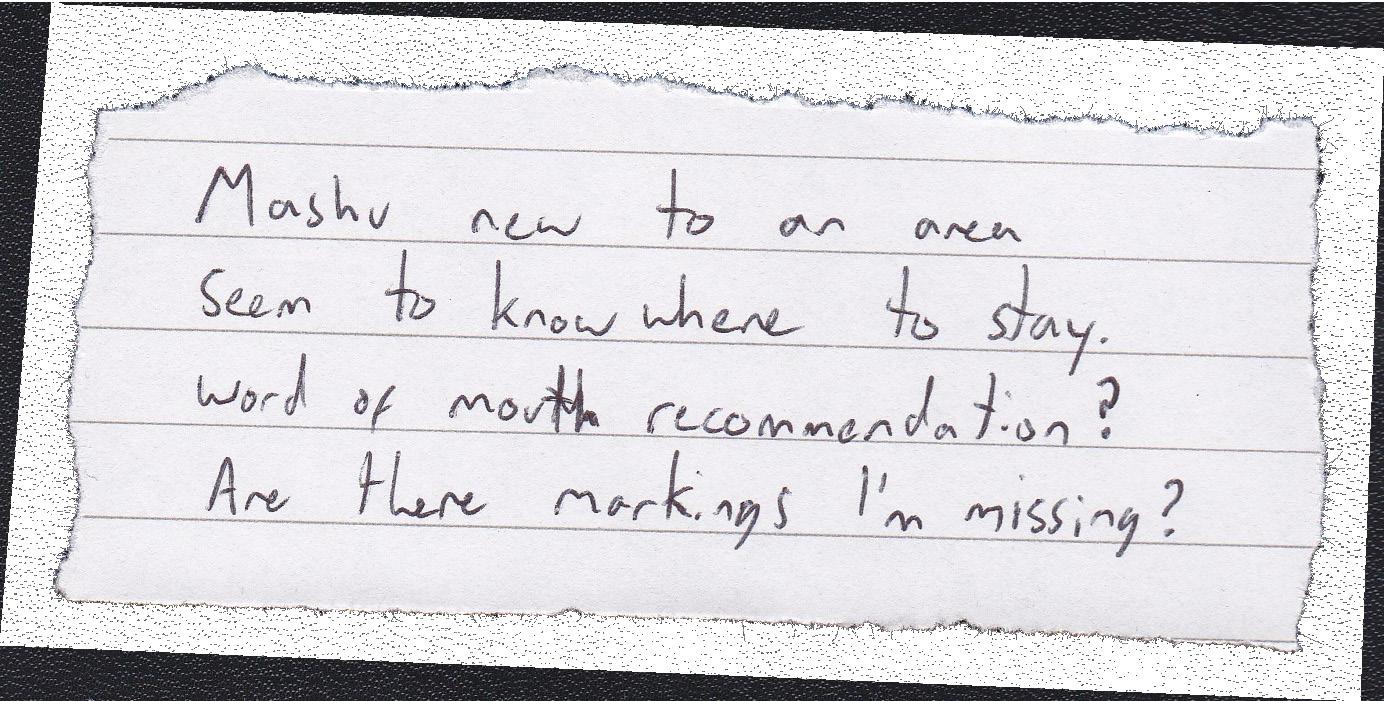 Mashu new to an area
seem to know where to stay.
word of mouth recommendation?
Are there markings I'm missing?